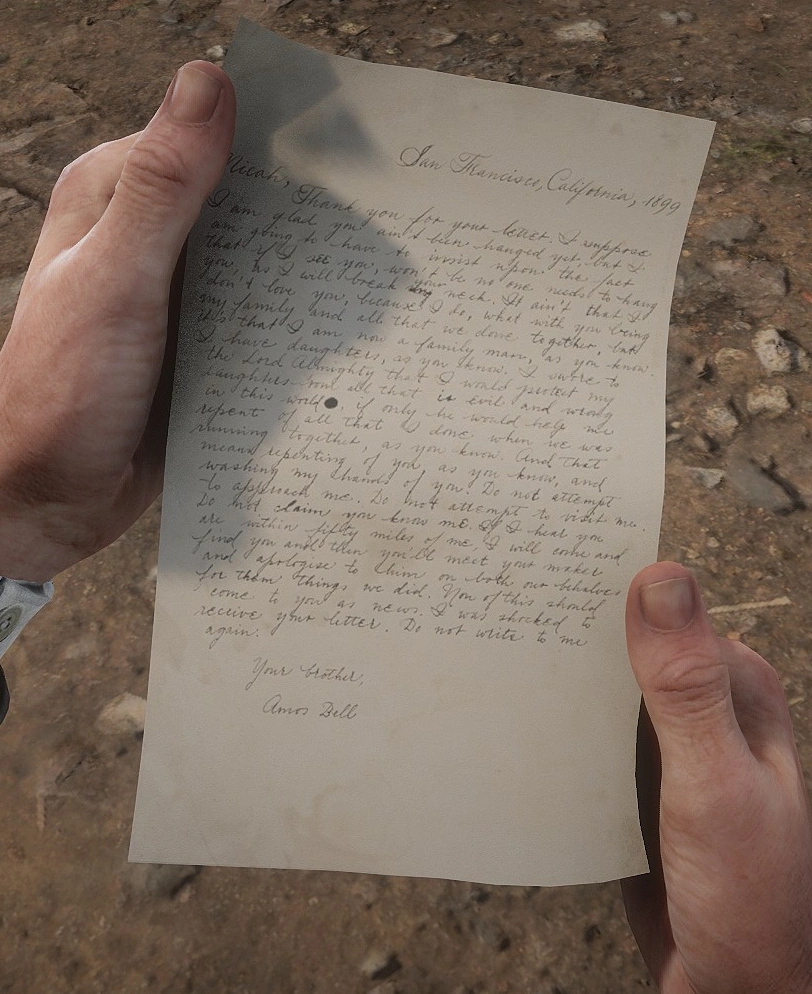 San Francisco, California, 1899
Micah,
Thank you for your letter. I suppose
I am glad you ain't been hanged yet, but I
am going to have to insist upon the fact
that if I see you, won't be no one needs to hang
you, as I will break your neck. It ain't that I
don't love you, because I do, what with you being
my family and all that we done together, but
it's that I am now a family man, as you know.
I have daughters, as you know. I swore to
the Lord Almighty that I would protect my
daughters from all that is evil and wrong
in this world, if only he would help me
repent of all that I done, when we was
running together, as you know. And that
means repenting of you, as you know, and
washing my hands of you. Do not attempt
to approach me. Do not attempt to visit me.
Do not claim you know me. If I hear you
are within fifty miles of me, I will come and
find you and then you'll meet your maker
and apologise to him on both our behalves
for them things we did. Non of this should
come to you as news. I was shocked to
receive your letter. Do not write to me
again.
Your brother,
Amos Bell